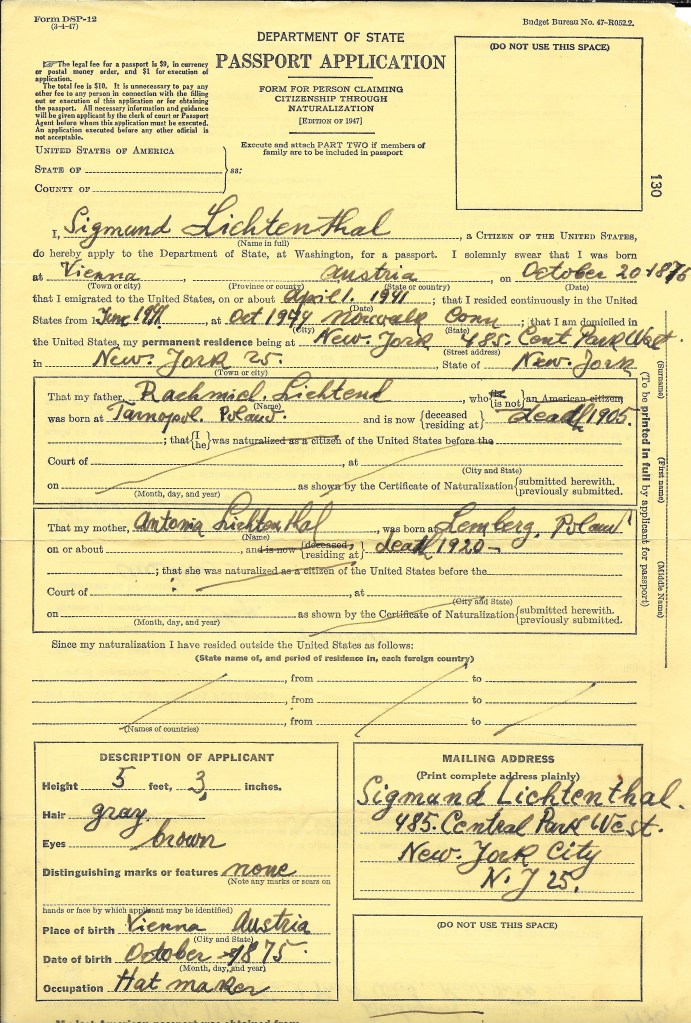 Form DSP-12
(3-4-47)
Budget Bureau No. 47–R052.2.
DEPARTMENT OF STATE
PASSPORT APPLICATION
FORM FOR PERSON CLAIMING
CITIZENSHIP THROUGH
NATURALIZATION
[EDITION OF 1947]
Execute and attach PART TWO if members of
family are to be included in passport
The legal fee for a passport is $9, in currency
or postal money order, and $1 for execution of
application.
The total fee is $10. It is unnecessary to pay any
other fee to any person in connection with the filling
out or execution of this application or for obtaining
the passport. All necessary information and guidance
will be given applicant by the clerk of court or Passport
Agent before whom this application must be executed.
An application executed before any other official is
not acceptable.
(DO NOT USE THIS SPACE)
UNITED STATES OF AMERICA
STATE OF
ss:
COUNTY OF
130
I, Sigmund Lichtenthal, a CITIZEN OF THE UNITED STATES,
(Name in full)
do hereby apply to the Department of State, at Washington, for a passport. I solemnly swear that I was born
at Vienna, Austria, on October 20 1876
(Town or city) (Province or county) (State or country) (Date)
that I emigrated to the United States, on or about April 1. 1941; that I resided continuously in the United
(Date)
States from 1941, at Oct 1944 Norwalk Conn; that I am domiciled in
(City) (State)
the United States, my permanent residence being at New. York 485. Cent. Park West.
(Street address)
in New. York 25., State of New. York
(Town or city)
That my father, Rachmiel. Lichtend, who {is is not} an American citizen
(Name)
was born at Tarnopol. Poland. and is now {deceased residing at} death 1905.
; that {I he} was naturalized as a citizen of the United States before the
Court of , at
(City and State)
on as shown by the Certificate of Naturalization {submitted herewith. previously submitted.
(Month, day, and year)
That my mother, Antonia Lichtenthal, was born at Lemberg, Poland
(Name)
on or about , and is now {deceased; residing at} death 1920–
; that she was naturalized as a citizen of the United States before the
Court of , at
(City and State)
on as shown by the Certificate of Naturalization {submitted herewith. previously submitted.
(Month, day, and year)
(To be printed in full by applicant for passport)
(Surname)
(First name)
(Middle Name)
Since my naturalization I have resided outside the United States as follows:
(State name of, and period of residence in, each foreign country)
, from to
, from to
, from to
(Names of countries)
DESCRIPTION OF APPLICANT
Height 5 feet, 3 inches.
Hair gray
Eyes brown
Distinguishing marks or features none
(Note any marks or scars on
hands or face by which applicant may be identified)
Place of birth Vienna Austria
(City and State)
Date of birth October 1875.
(Month, day, and year)
Occupation Hat maker
MAILING ADDRESS
(Print complete address plainly)
Sigmund Lichtenthal.
485. Central Park West.
New. York City
N. Y 25.
(DO NOT USE THIS SPACE)
My last American passport was obtained from